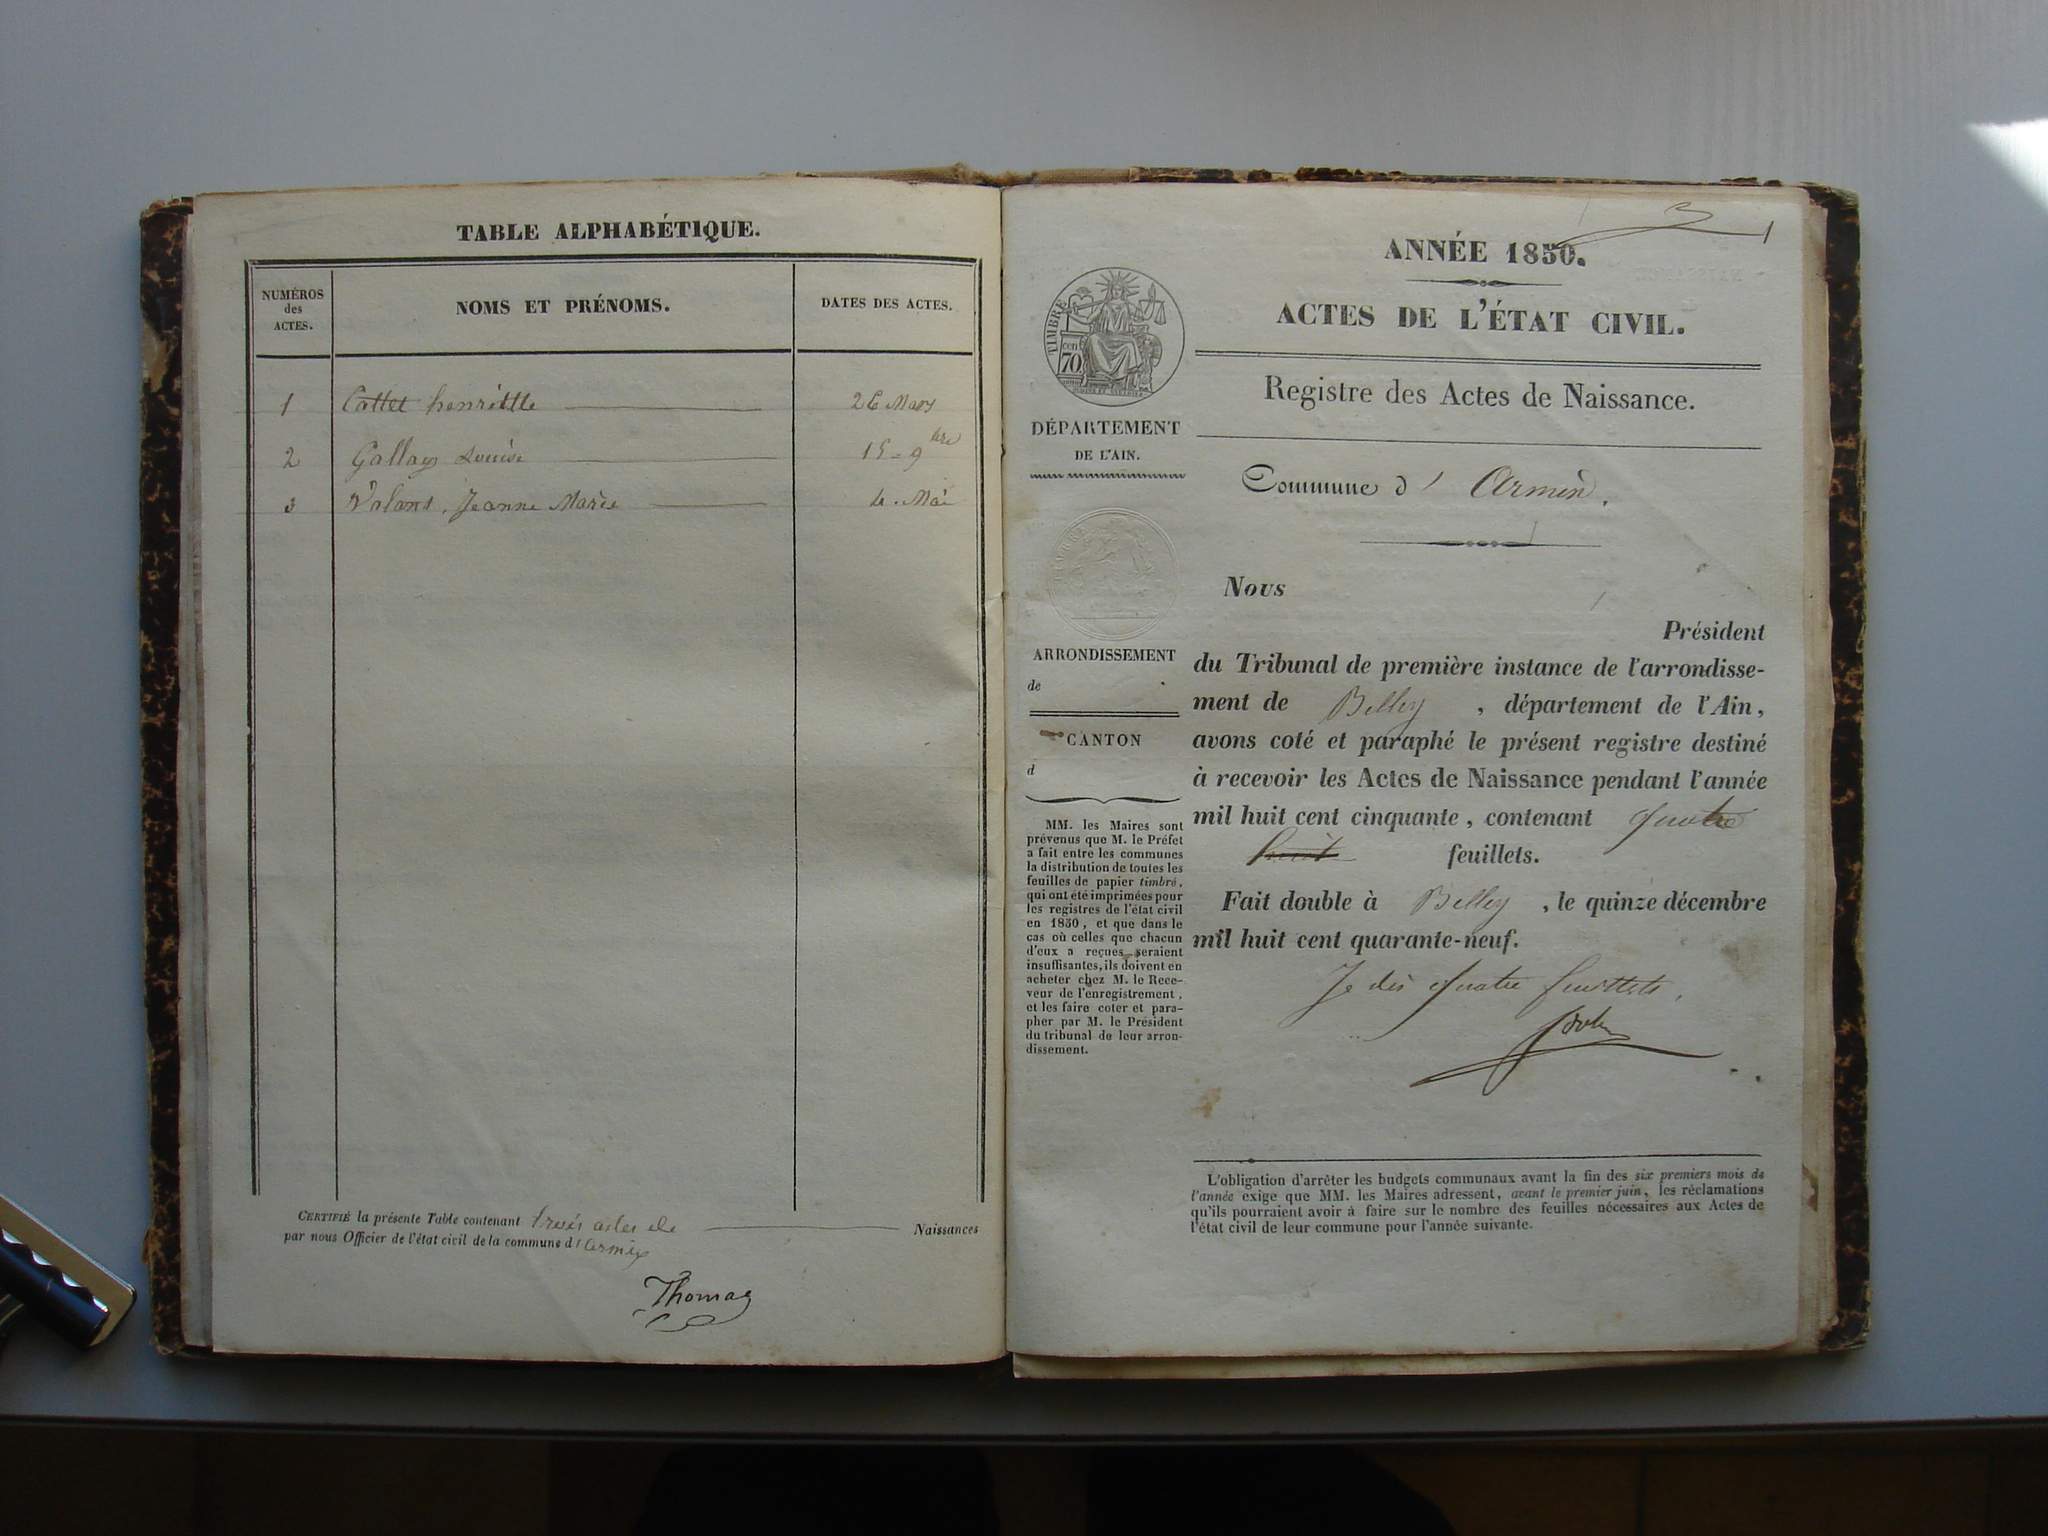 TABLE ALPHABÉTIQUE.
NUMÉROS des ACTES.
NOMS ET PRÉNOMS.
DATES DES ACTES.
1 Cattet henriette 26 Mars
2 Gallay Louise 15 - 9bre
3 Jeanne Marie 4. Mai
CERTIFIÉ la présente Table contenant trois actes de Naissances
par nous Officier de l'état civil de la commune d'Armix
Thomas
1
ANNÉE 1850.
ACTES DE L'ÉTAT CIVIL.
Registre des Actes de Naissance.
TIMBRE
cen
70
DÉPARTEMENT
DE L'AIN.
Commune d' Armix.
Nous
Président
du Tribunal de première instance de l'arrondisse-
ment de Belley, département de l'Ain,
avons coté et paraphé le présent registre destiné
à recevoir les Actes de Naissance pendant l'année
mil huit cent cinquante, contenant quatre
huit feuillets.
Fait double à Belley, le quinze décembre
mil huit cent quarante-neuf.
Je dis quatre feuillets.
ARRONDISSEMENT
de
CANTON
d
MM. les Maires sont
prévenus que M. le Préfet
a fait entre les communes
la distribution de toutes les
feuilles de papier timbré,
qui ont été imprimées pour
les registres de l'état civil
en 1850, et que dans le
cas où celles que chacun
d'eux a reçues seraient
insuffisantes, ils doivent en
acheter chez M. le Rece-
veur de l'enregistrement,
et les faire coter et para-
pher par M. le Président
du tribunal de leur arron-
dissement.
L'obligation d'arrêter les budgets communaux avant la fin des six premiers mois de
l'année exige que MM. les Maires adressent, avant le premier juin, les réclamations
qu'ils pourraient avoir à faire sur le nombre des feuilles nécessaires aux Actes de
l'état civil de leur commune pour l'année suivante.